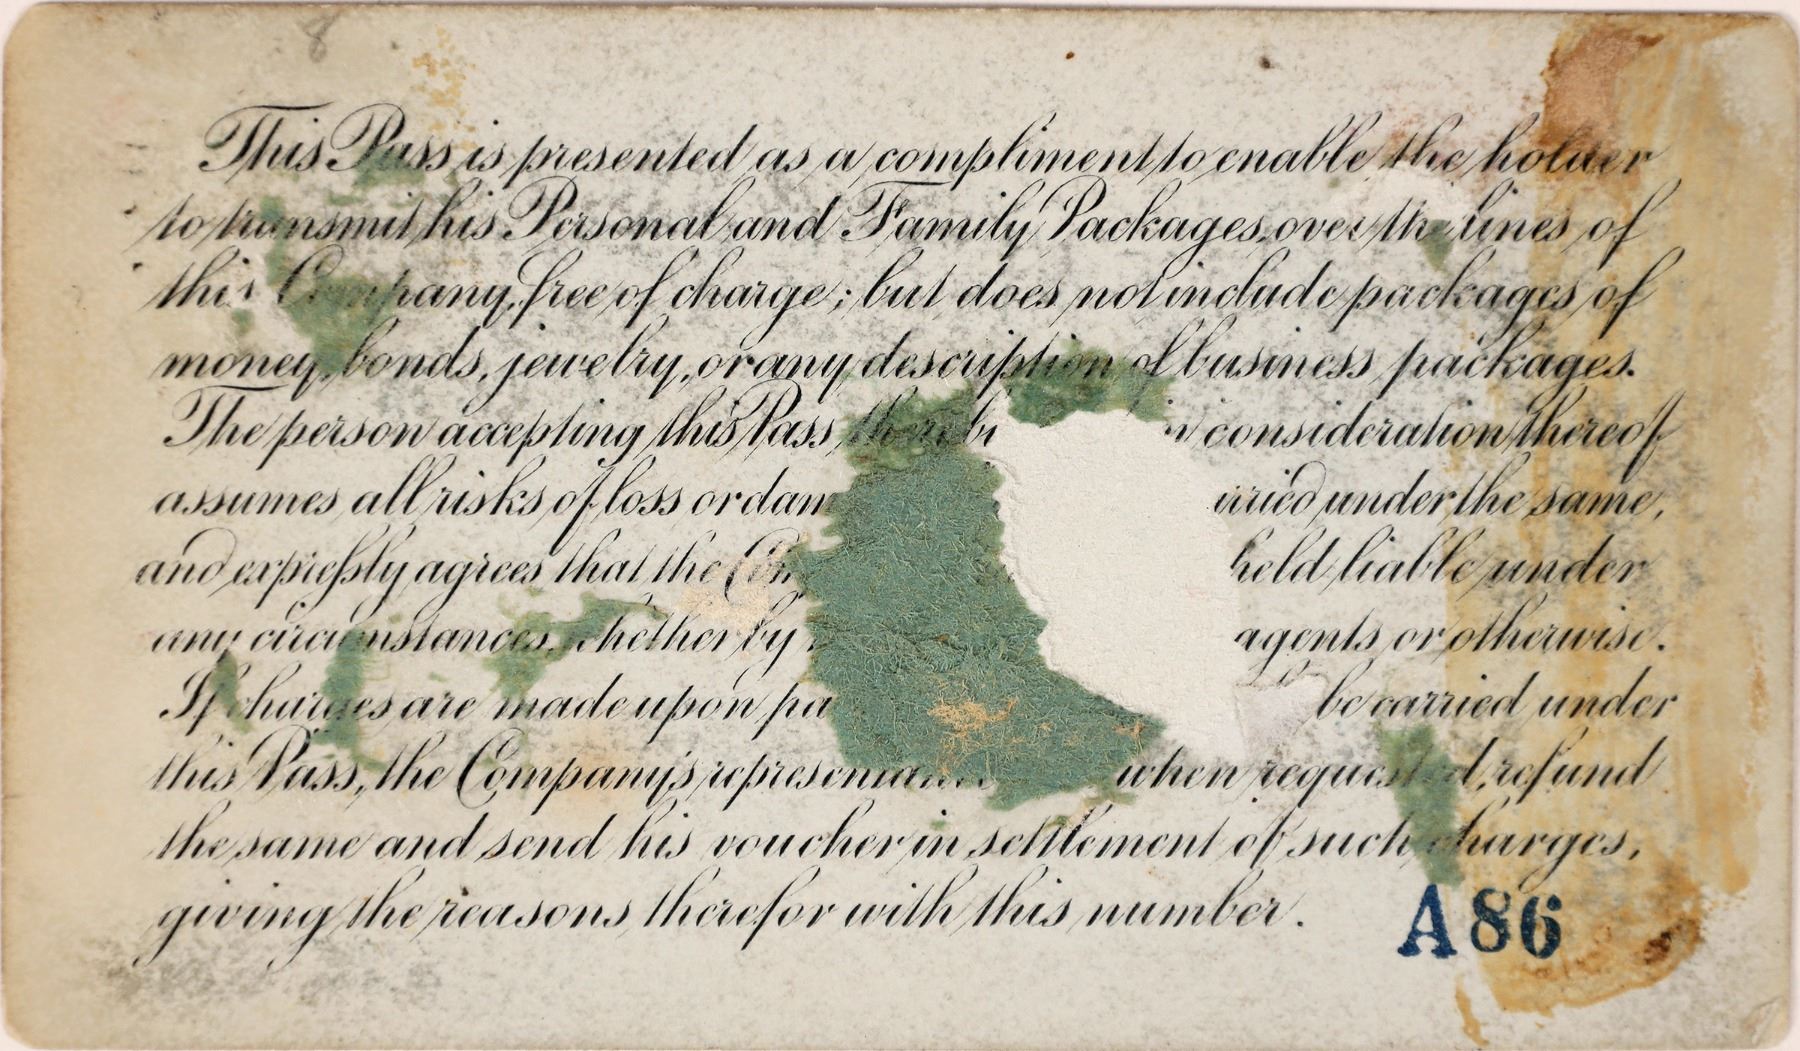 8
This Pass is presented as a compliment to enable the holder
to transmit his Personal and Family Packages, over the lines of
this Company, free of charge; but does not include packages of
money, bonds, jewelry, or any description of business packages.
The person accepting this Pass, consideration thereof
assumes all risks of loss or under the same,
and expressly agrees that the held liable under
any circumstances, whether by agents or otherwise.
If charges are made upon be carried under
this Pass, the Company's when requested, refund
the same and send his voucher in settlement of such charges,
giving the reasons therefor with this number.
A86